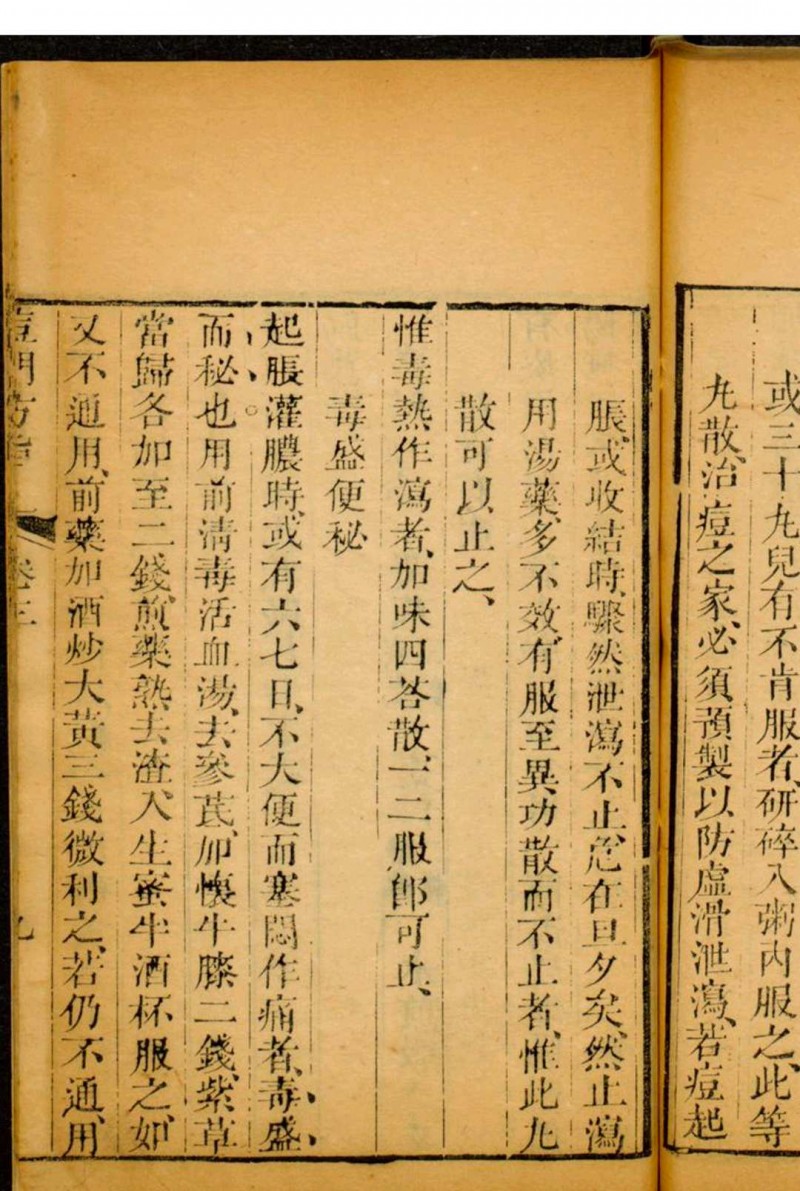 或三十丸兒有不肯服者、研碎入粥内服之、此等
丸散、治痘之家、必須預製以防虛滑泄瀉、若痘起
脹、或收結時、驟然泄瀉不止、危在旦夕矣、然止瀉
用湯藥、多不效、有服至異功散而不止者、惟此九
散可以止之、
惟毒熱作瀉者、加味四苓散、一二服、即可止、
毒盛便秘
起脹灌膿時、或有六七日、不大便而塞悶作痛者、毒盛
而秘也、用前清毒活血湯、去參芪、加懷牛膝二錢、紫草
當歸各加至二錢、煎藥熟去渣、入生蜜半酒杯服之、如
又不通用、前藥加酒炒大黃三錢微利之、若仍不通、用
卷三
九